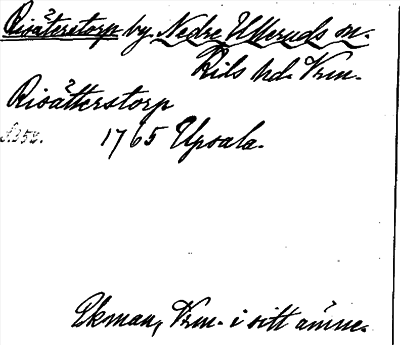 Risäterstorp by Nedre Ulleruds sn.
Kils hd. Vrm.
Risätterstorp
s. 358. 1765 Upsala.
Ekman, Vrm. i sitt ämne.